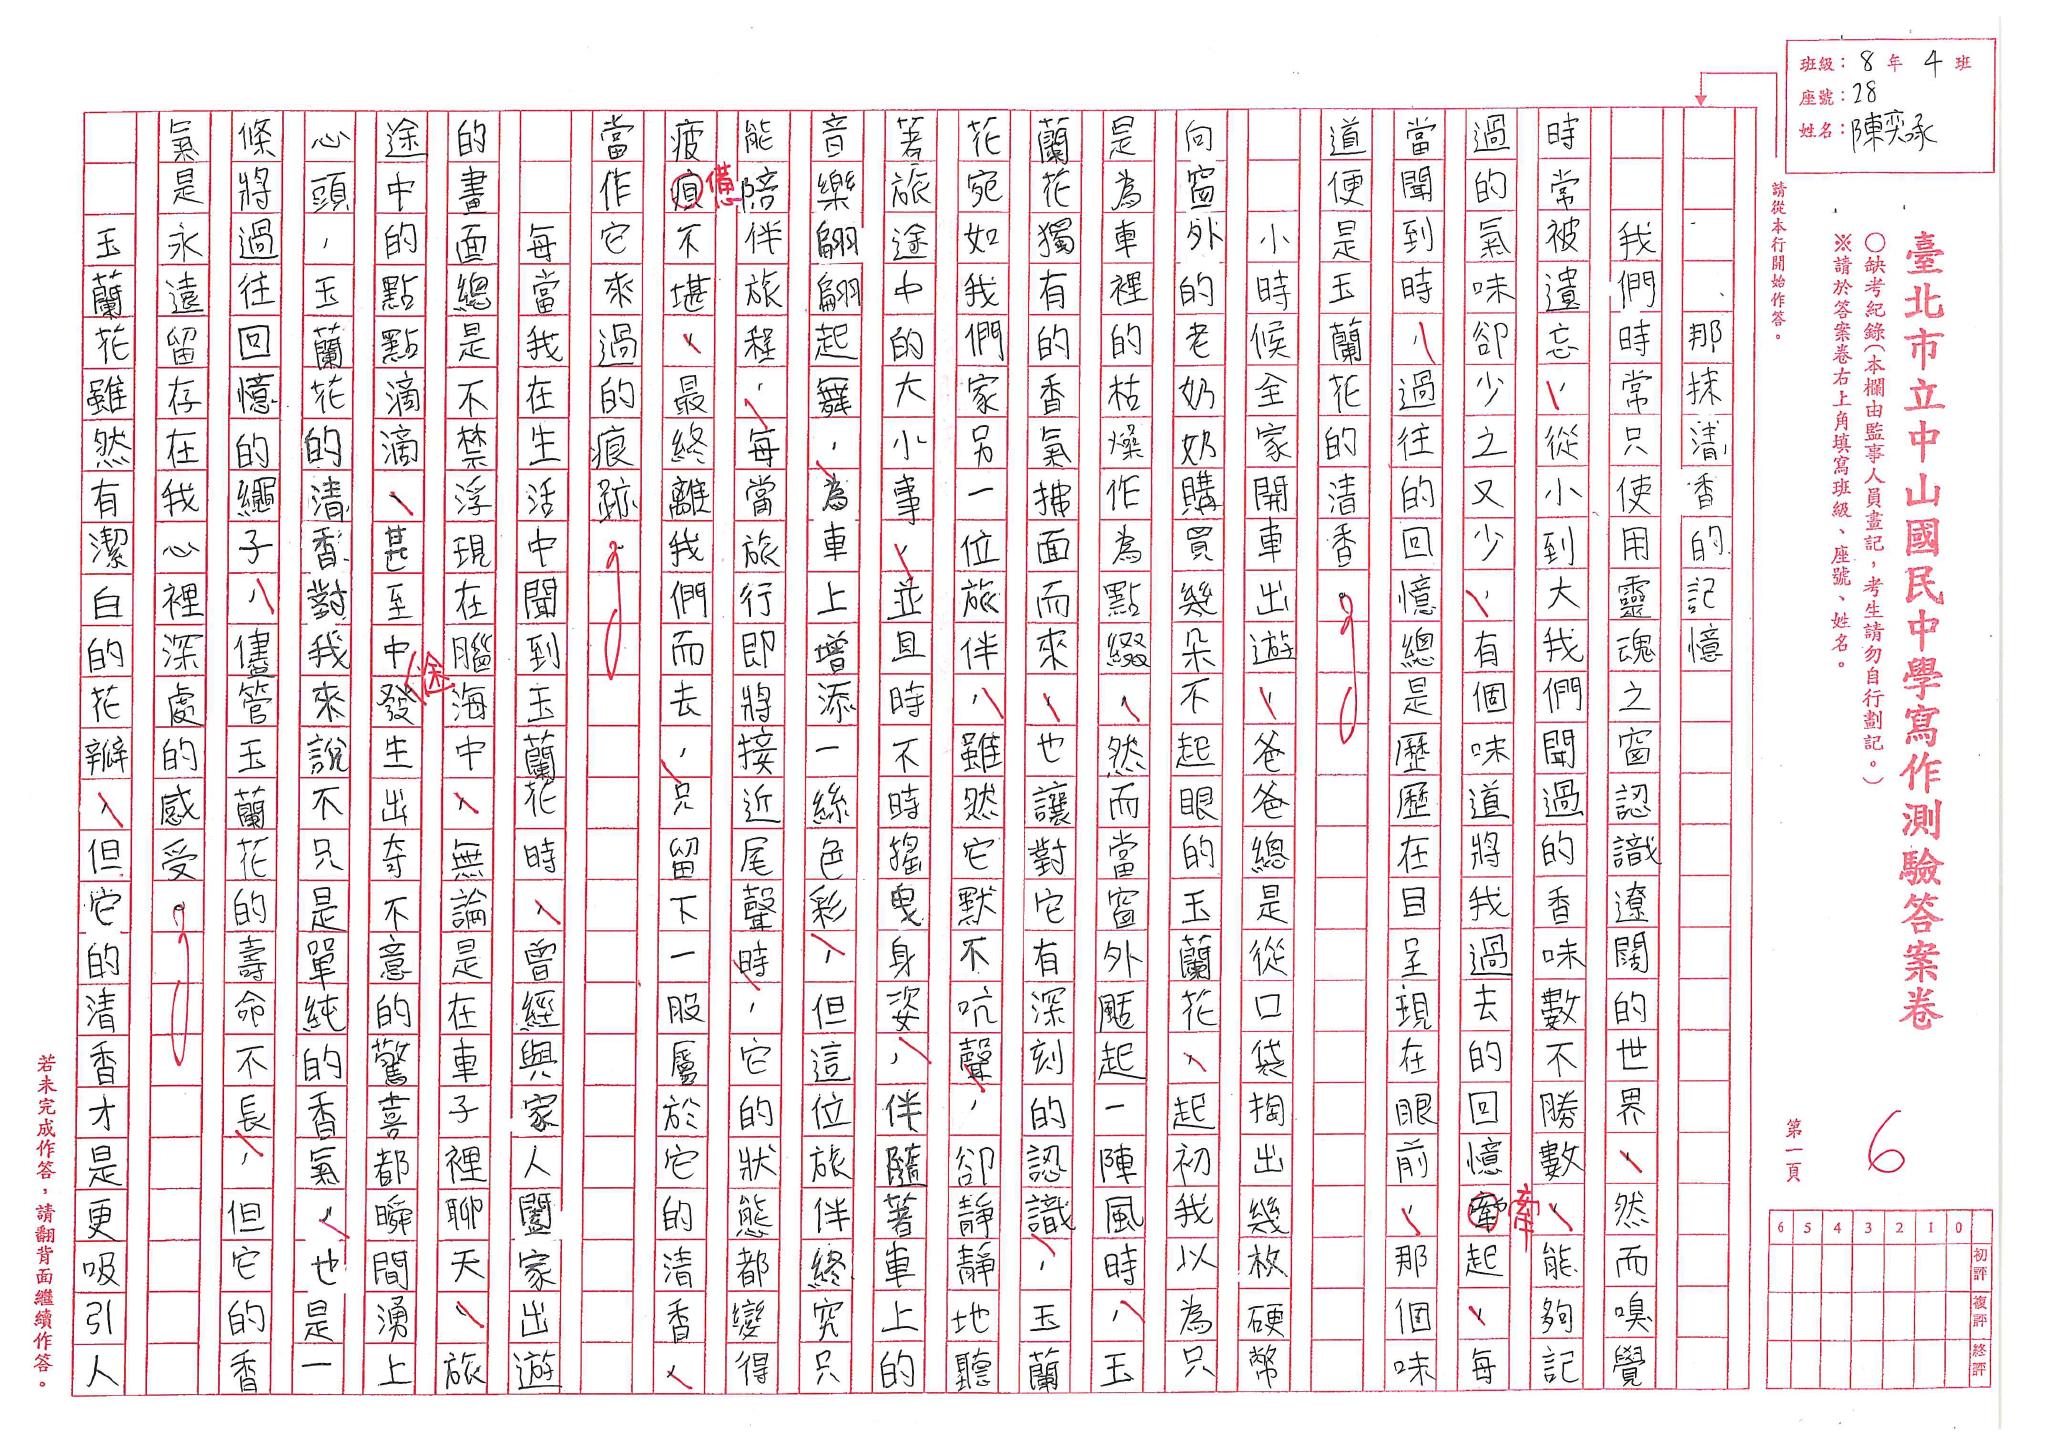 班級：8年4班
座號：28
姓名：陳奕承
請從本行開始作答。
臺北市立中山國民中學寫作測驗答案卷
○缺考紀錄（本欄由監事人員畫記，考生請勿自行劃記。）
※請於答案卷右上角填寫班級、座號、姓名。
第一頁
6
6 5 4 3 2 1 0
初評
複評
終評
那抹清香的記憶
我們時常只使用靈魂之窗認識遼闊的世界，然而嗅覺
時常被遺忘，從小到大我們聞過的香味數不勝數，能夠記
過的氣味卻少之又少，有個味道將我過去的回憶牽起，每
牽
當聞到時，過往的回憶總是歷歷在目呈現在眼前，那個味
道便是玉蘭花的清香。
小時候全家開車出遊，爸爸總是從口袋掏出幾枚硬幣
向窗外的老奶奶購買幾朵不起眼的玉蘭花，起初我以為只
是為車裡的枯燥作為點綴，然而當窗外颳起一陣風時，玉
蘭花獨有的香氣拂面而來，也讓對它有深刻的認識，玉蘭
花宛如我們家另一位旅伴，雖然它默不吭聲，卻靜靜地聽
著旅途中的大小事，並且時不時搖曳身姿，伴隨著車上的
音樂翩翩起舞，為車上增添一絲色彩，但這位旅伴終究只
能陪伴旅程，每當旅行即將接近尾聲時，它的狀態都變得
憊
疲不堪，最終離我們而去，只留下一股屬於它的清香，
當作它來過的痕跡。
每當我在生活中聞到玉蘭花時，曾經與家人闔家出遊
的畫面總是不禁浮現在腦海中，無論是在車子裡聊天，旅
途中的點點滴滴，甚至中發生出奇不意的驚喜都瞬間湧上
途
心頭，玉蘭花的清香對我來說不只是單純的香氣，也是一
條將過往回憶的繩子，儘管玉蘭花的壽命不長，但它的香
氣是永遠留存在我心裡深處的感受。
玉蘭花雖然有潔白的花瓣，但它的清香才是更吸引人
若未完成作答，請翻背面繼續作答。